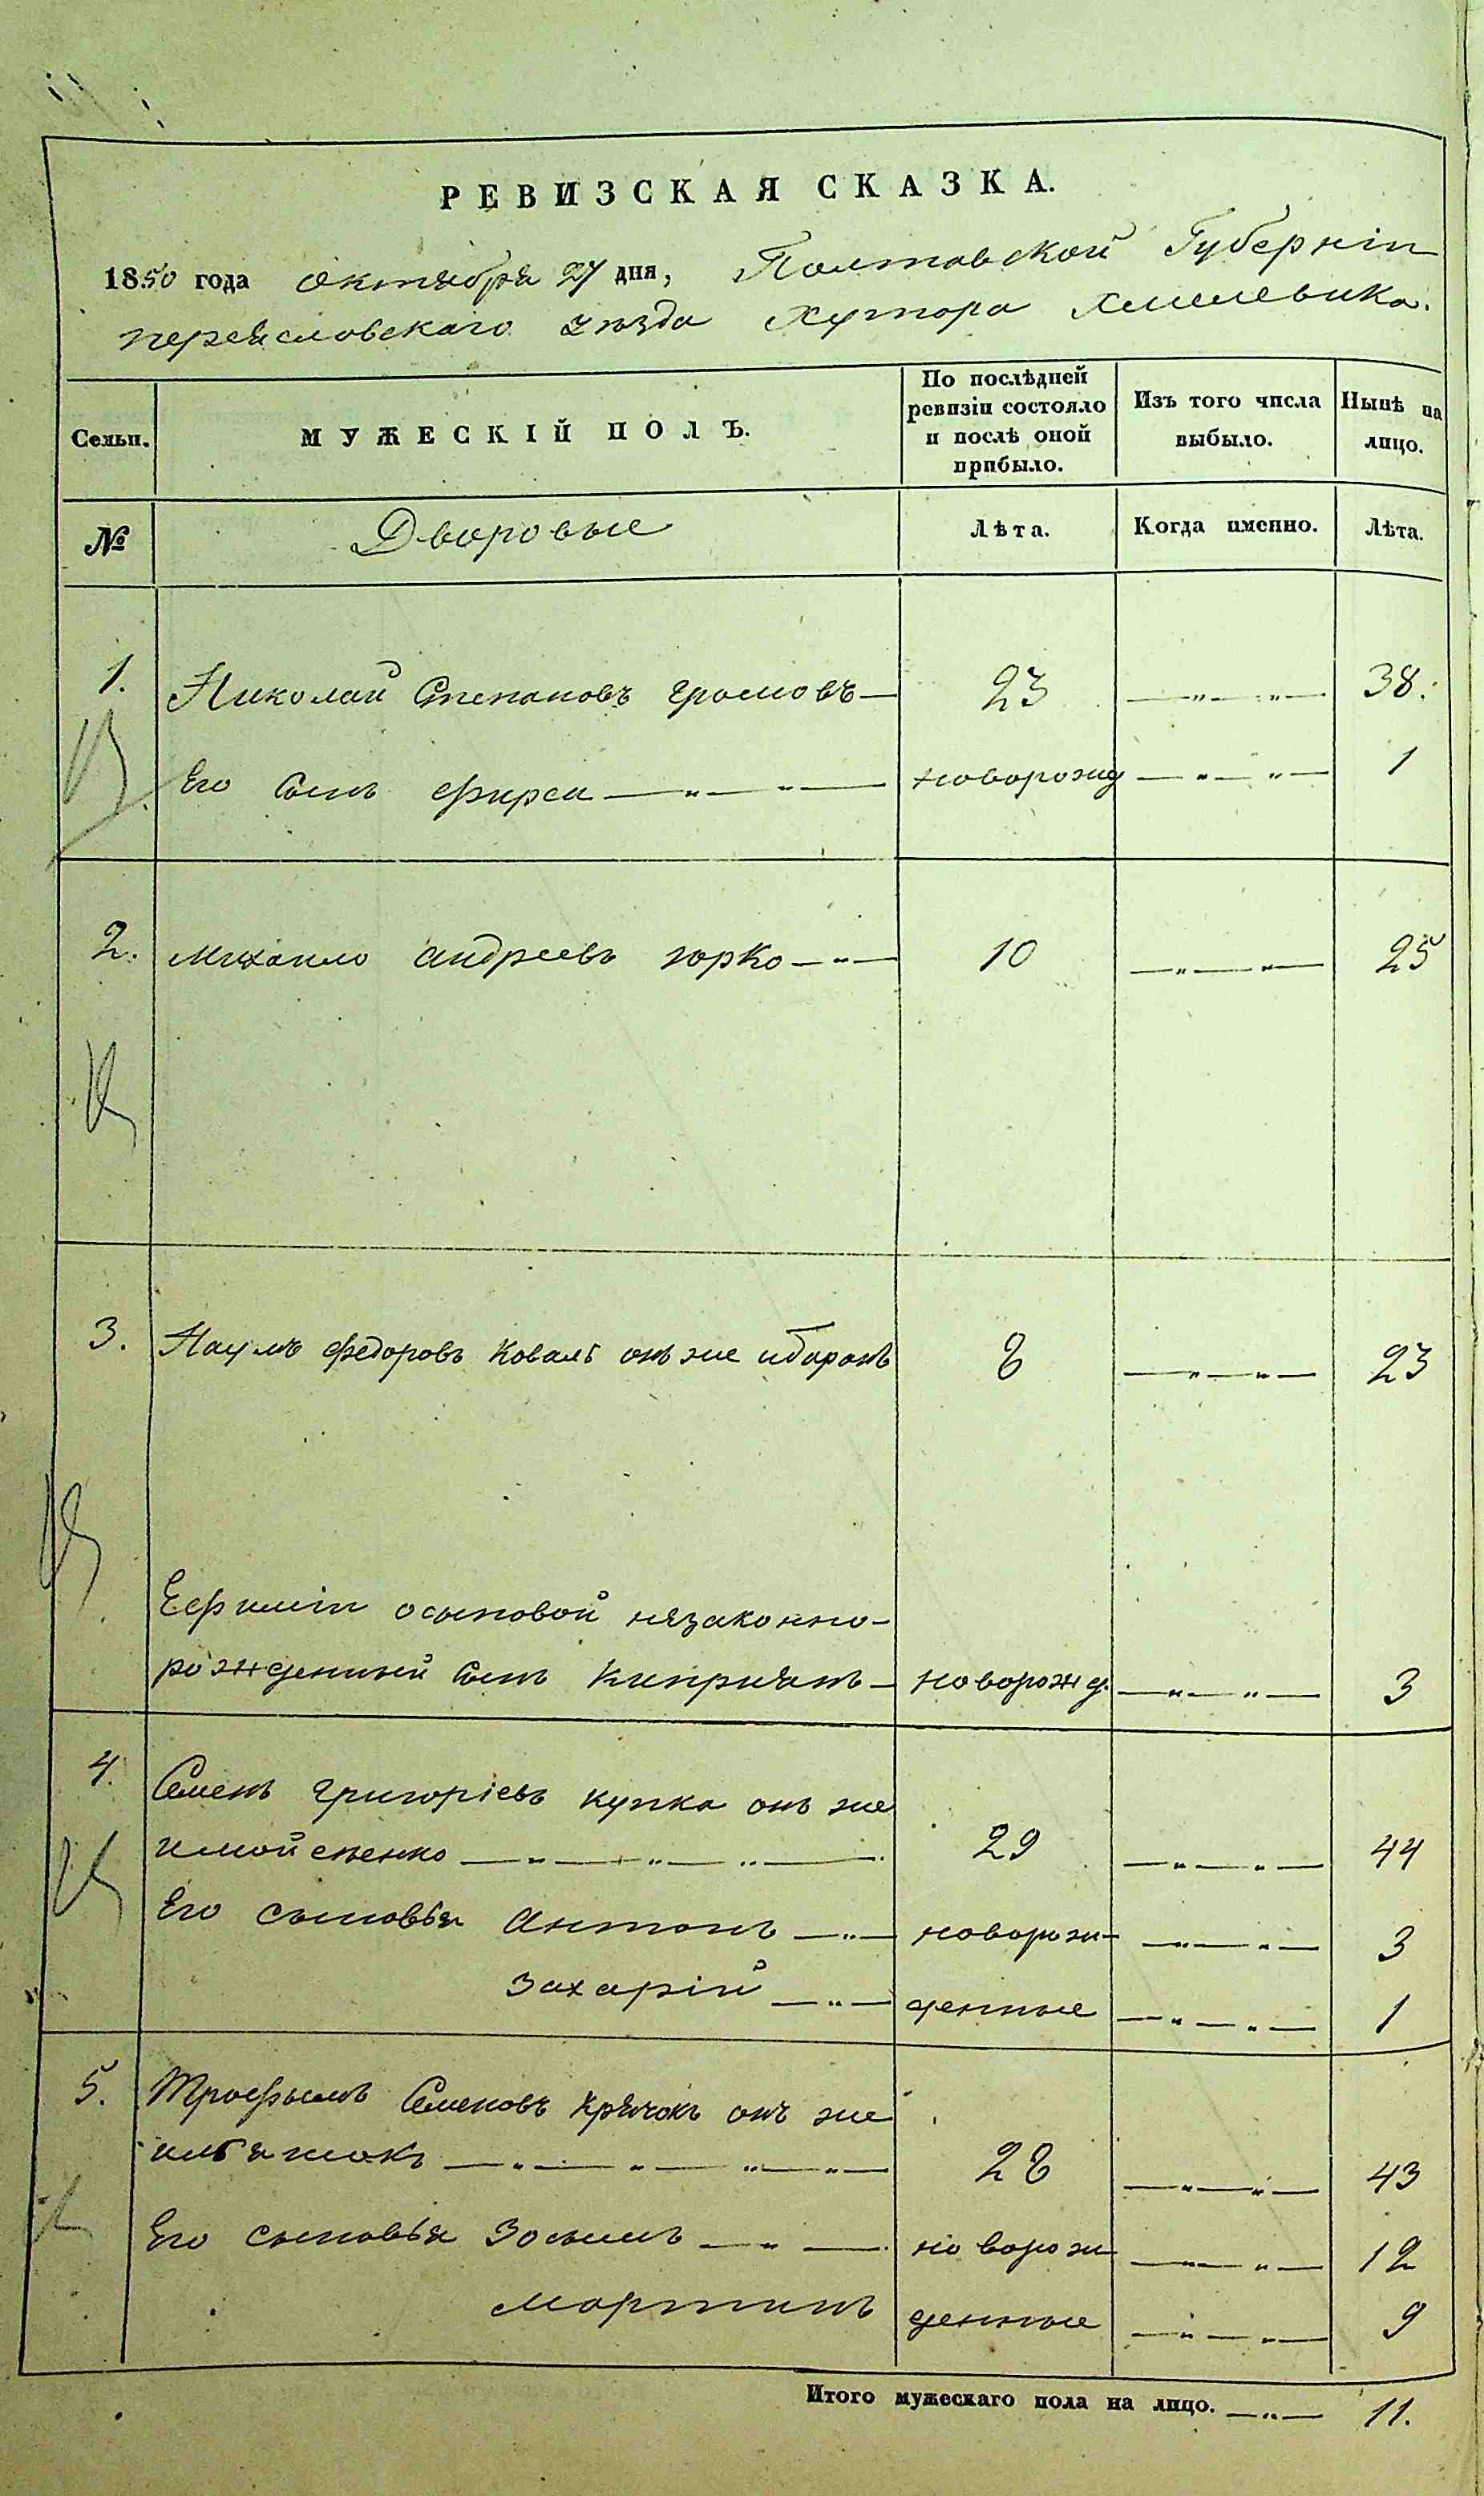 РЕВИЗСКАЯ СКАЗКА.
1850 года октября 27 дня, Полтавской Губерніи
переясловскаго уѣзда Хутора Хмелевика.
Семьи. МУЖЕСКІЙ ПОЛЪ. По послѣдней ревизіи состояло и послѣ оной прибыло. Изъ того числа выбыло. Нынѣ на лицо.
№ Дворовые Лѣта. Когда именно. Лѣта.
1. Николай Степановъ Громовъ — 23 — „ — „ — 38.
Его Сынъ Фирса — „ — „ — новорожд — „ — „ — 1
2. Михаило андреевъ юрко — „ — 10 — „ — „ — 25
3. Наумъ Федоровъ Коваль онъ же ибаранъ 8 — „ — „ — 23
Ефиміи осиповой незаконно-
рожденный Сынъ Кипріянъ — новорожд. — „ — „ — 3
4. Семенъ Григоріевъ купка онъ же
имойсѣенко — „ — „ — „ — 29 — „ — „ — 44
Его сыновья Антонъ — „ — новорож- — „ — „ — 3
Захарій — „ — денные — „ — „ — 1
5. Трофымъ Семеновъ Крячокъ онъ же
— „ — „ — „ — „ — 28 — „ — „ — 43
Его сыновья Зосимъ — „ — новорож — „ — „ — 12
Мартинъ денные — „ — „ — 9
Итого мужескаго пола на лицо. — „ — 11.